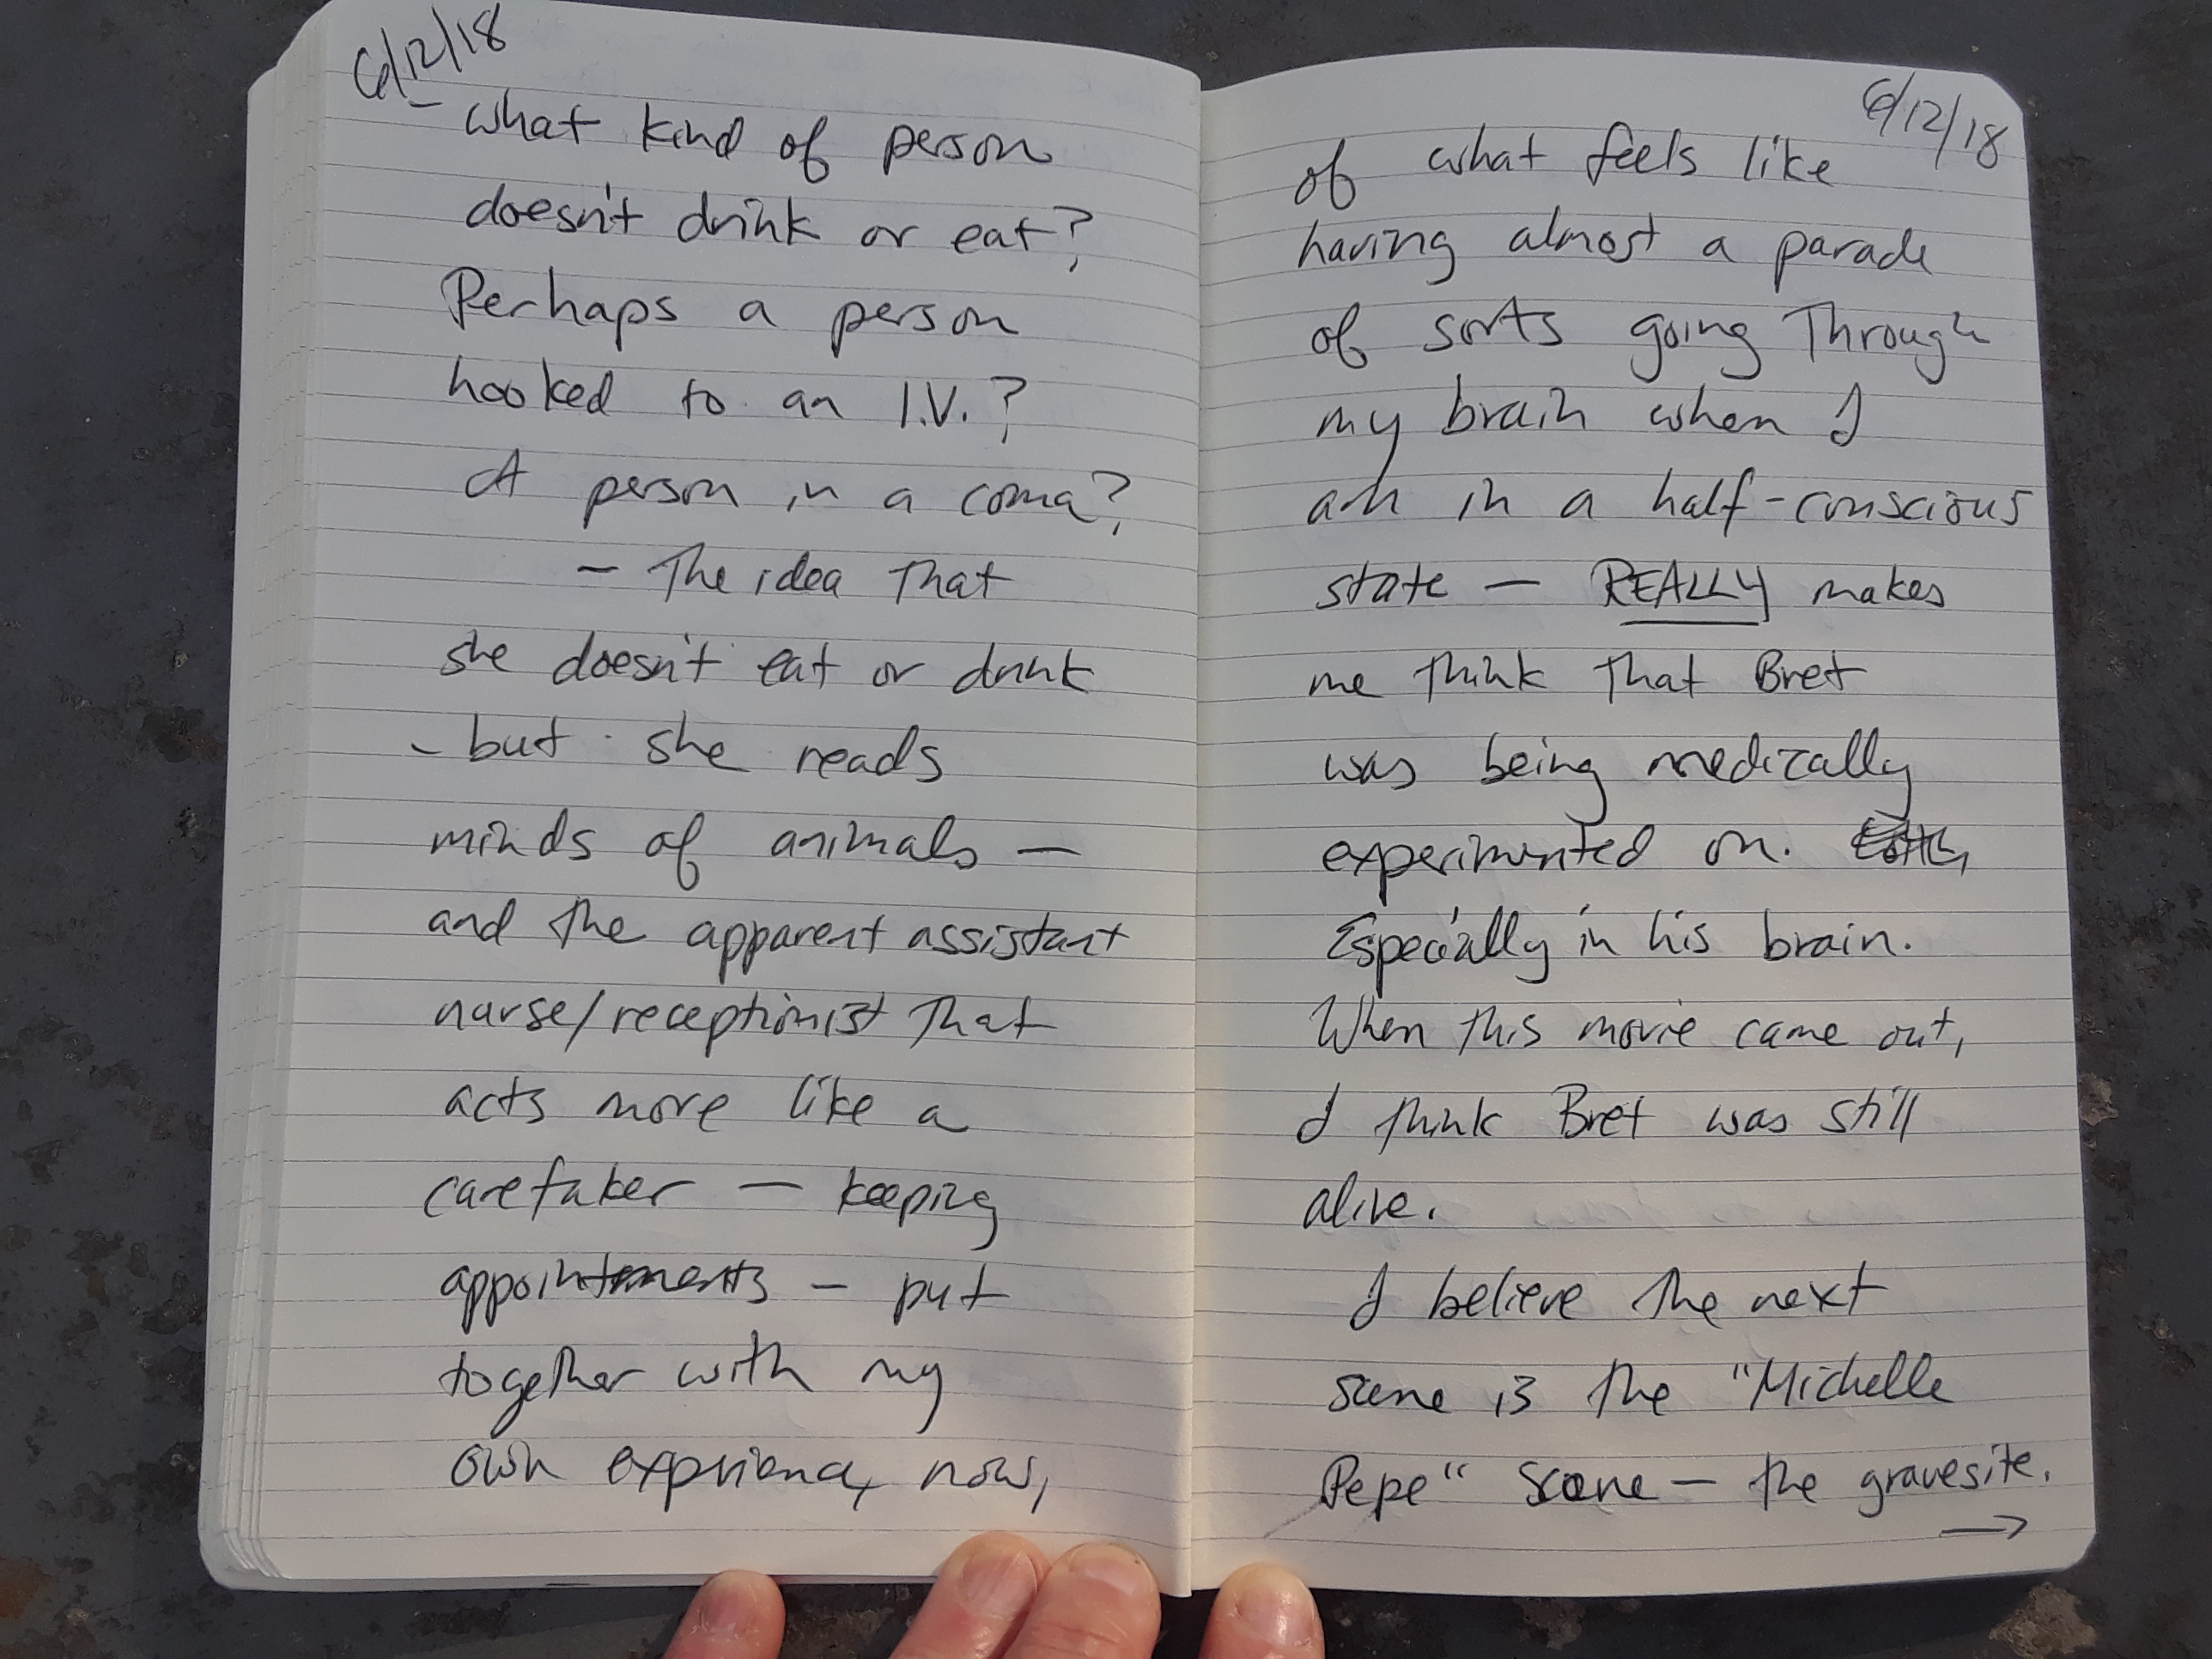 6/12/18
- what kind of person
doesn't drink or eat?
Perhaps a person
hooked to an I.V.?
A person in a coma?
- The idea that
she doesn't eat or drink
- but she reads
minds of animals —
and the apparent assistant
nurse/receptionist that
acts more like a
caretaker — keeping
appointments - put
together with my
own experience, now,
6/12/18
of what feels like
having almost a parade
of sorts going through
my brain when I
am in a half-conscious
state — REALLY makes
me think that Bret
was being medically
experimented on.
Especially in his brain.
When this movie came out,
I think Bret was still
alive.
I believe the next
scene is the "Michelle
Pepe" scene — the gravesite.
→